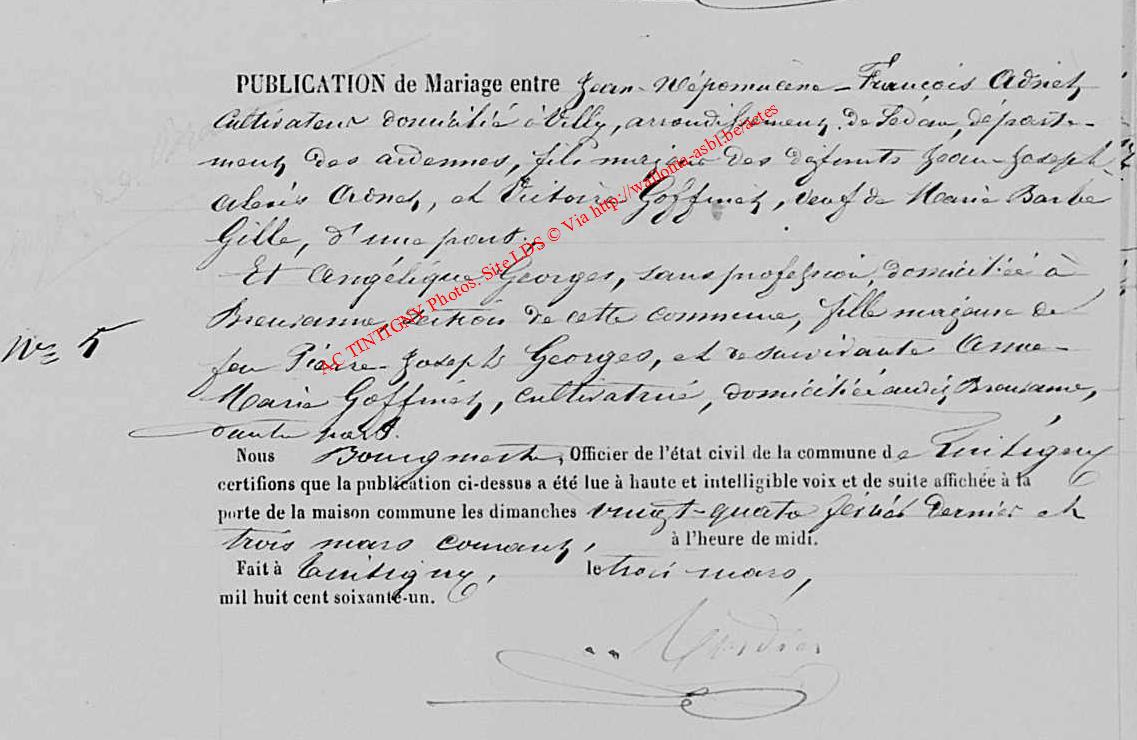 PUBLICATION de Mariage entre Jean-Népomucène-François Adnet
Cultivateur domicilié à Villy, arrondissement de Sedan, départe-
ment des ardennes, fils majeur des défunts Jean-Joseph
alexis Adnet, et Victoire Goffinet, veuf de Marie Barbe
Gille, d'une part.
Et Angélique Georges, sans profession, domiciliée à
Breuvanne, section de cette commune, fille majeure de
feu Pierre-Joseph Georges, et de survivante Anne-
N° 5
Marie Goffinet, cultivatrice, domiciliée audit Breuvanne,
d'autre part.
Nous Bourgmestre, Officier de l'état civil de la commune de Tintigny
certifions que la publication ci-dessus a été lue à haute et intelligible voix et de suite affichée à la
porte de la maison commune les dimanches vingt-quatre février dernier et
trois mars courant, à l'heure de midi.
Fait à Tintigny, le trois mars,
mil huit cent soixante-un.
AC TINTIGNY Photos. Site LDS © Via http://wallonia-asbl.be/actes